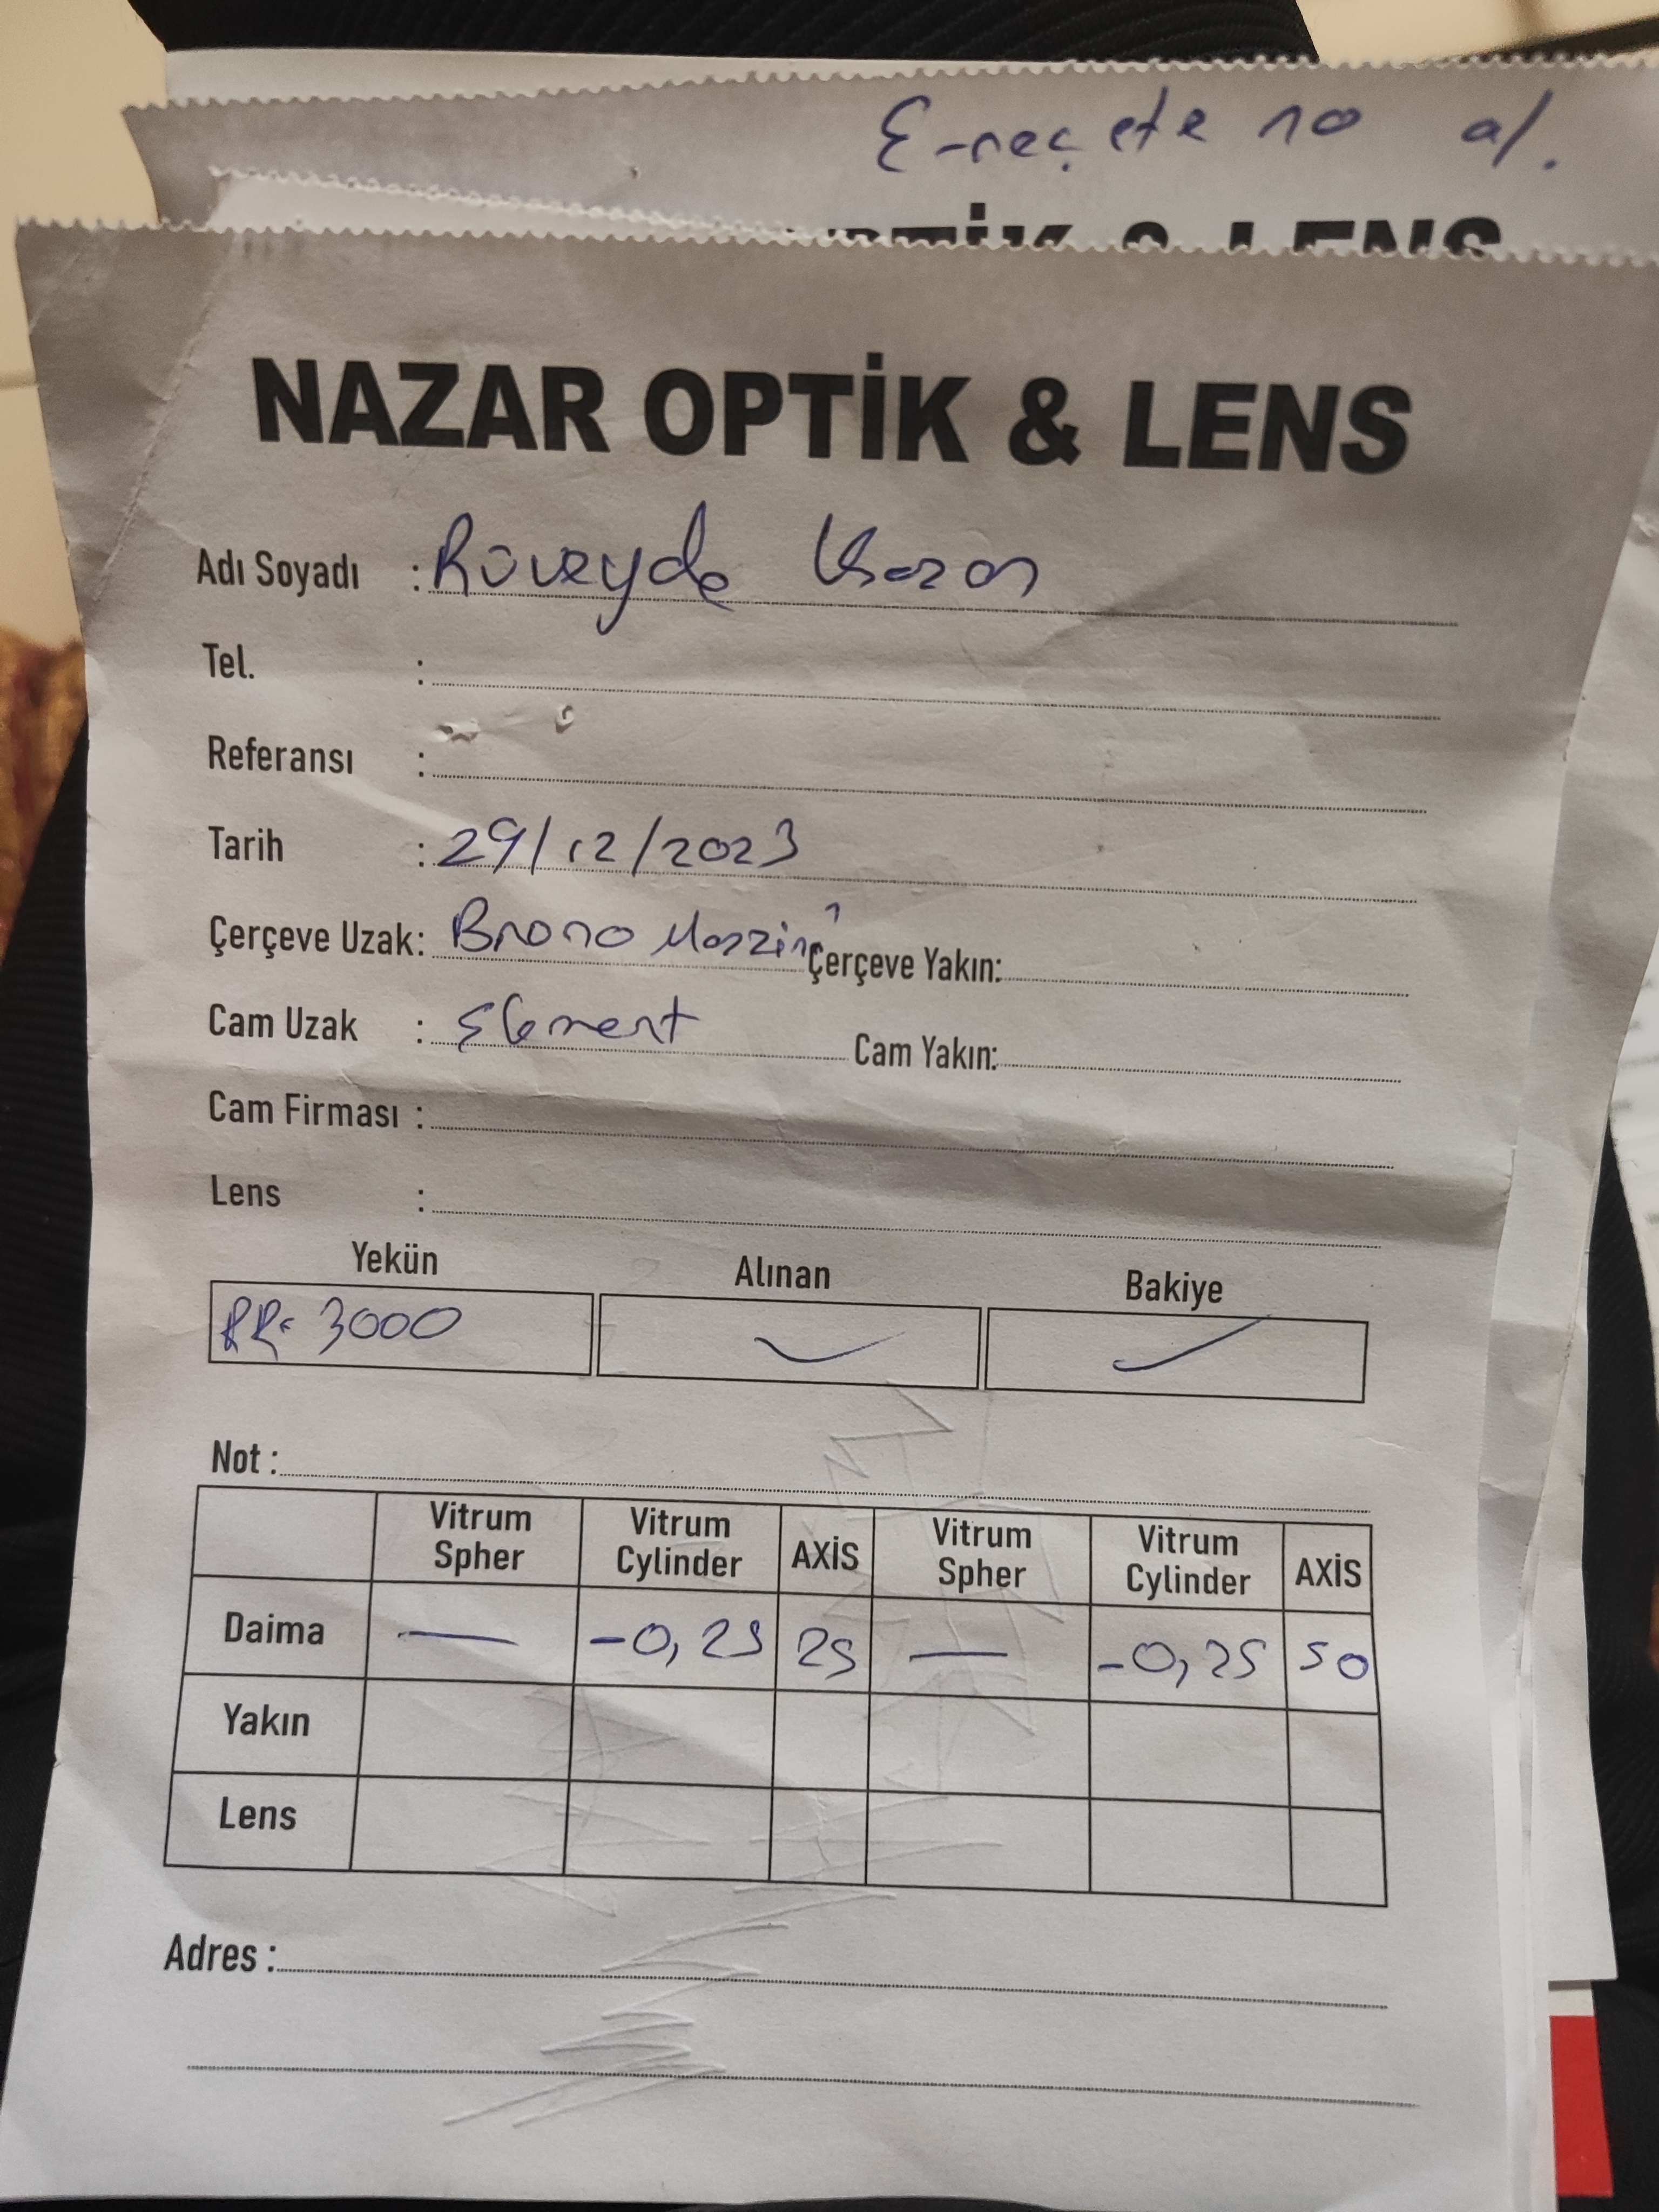 E-reçete no al.
OPTİK & LENS
NAZAR OPTİK & LENS
Adı Soyadı : Rüveyda
Tel. :
Referansı :
Tarih : 29/12/2023
Çerçeve Uzak: Bruno Mazzini Çerçeve Yakın:
Cam Uzak : Element Cam Yakın:
Cam Firması :
Lens :
Yekün Alınan Bakiye
3000
Not :
Vitrum Spher Vitrum Cylinder AXİS Vitrum Spher Vitrum Cylinder AXİS
Daima — -0,25 25 — -0,25 50
Yakın
Lens
Adres :